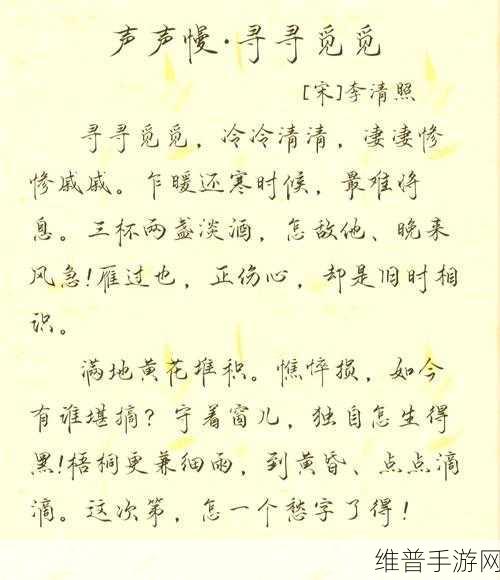 声声慢·寻寻觅觅
[宋]李清照
寻寻觅觅，冷冷清清，凄凄惨
惨戚戚。乍暖还寒时候，最难将
息。三杯两盏淡酒，怎敌他、晚来
风急!雁过也，正伤心，却是旧时相
识。
满地黄花堆积。憔悴损，如今
有谁堪摘？守着窗儿，独自怎生得
黑!梧桐更兼细雨，到黄昏、点点滴
滴。这次第，怎一个愁字了得！
维普手游网